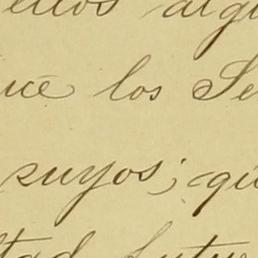 ellos algu
uce los Se
suyos; qu
ltad futu